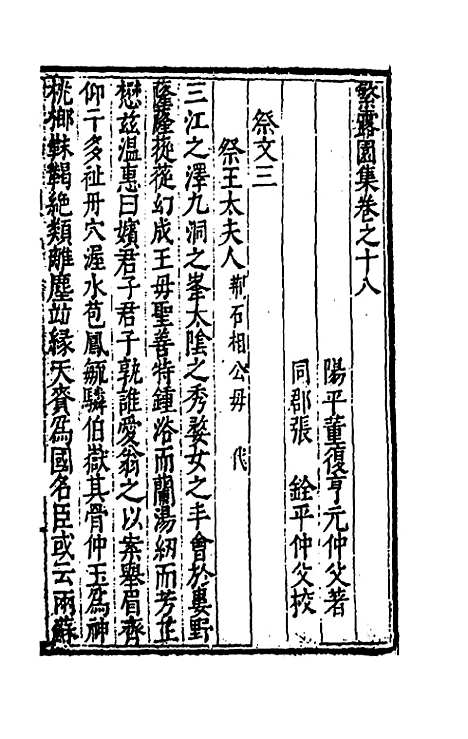 繁露園集卷之十八
陽平董復亨元仲父著
同郡張　銓平仲父校
祭文三
祭王太夫人荊石相公母　代
三江之澤九洞之峯太陰之秀婺女之丰會於婁野
薩薩蓰蓰幻成王母聖善特鍾浴而蘭湯紉而芳芷
懋玆溫惠曰嬪君子君子孰誰愛翁之以案舉眉齊
仰干多祉丹穴渥水苞鳳毓驎伯嶽其骨仲玉爲神
桃榔韎鞨絶類離塵竝緣天賚爲國名臣或云兩蘇